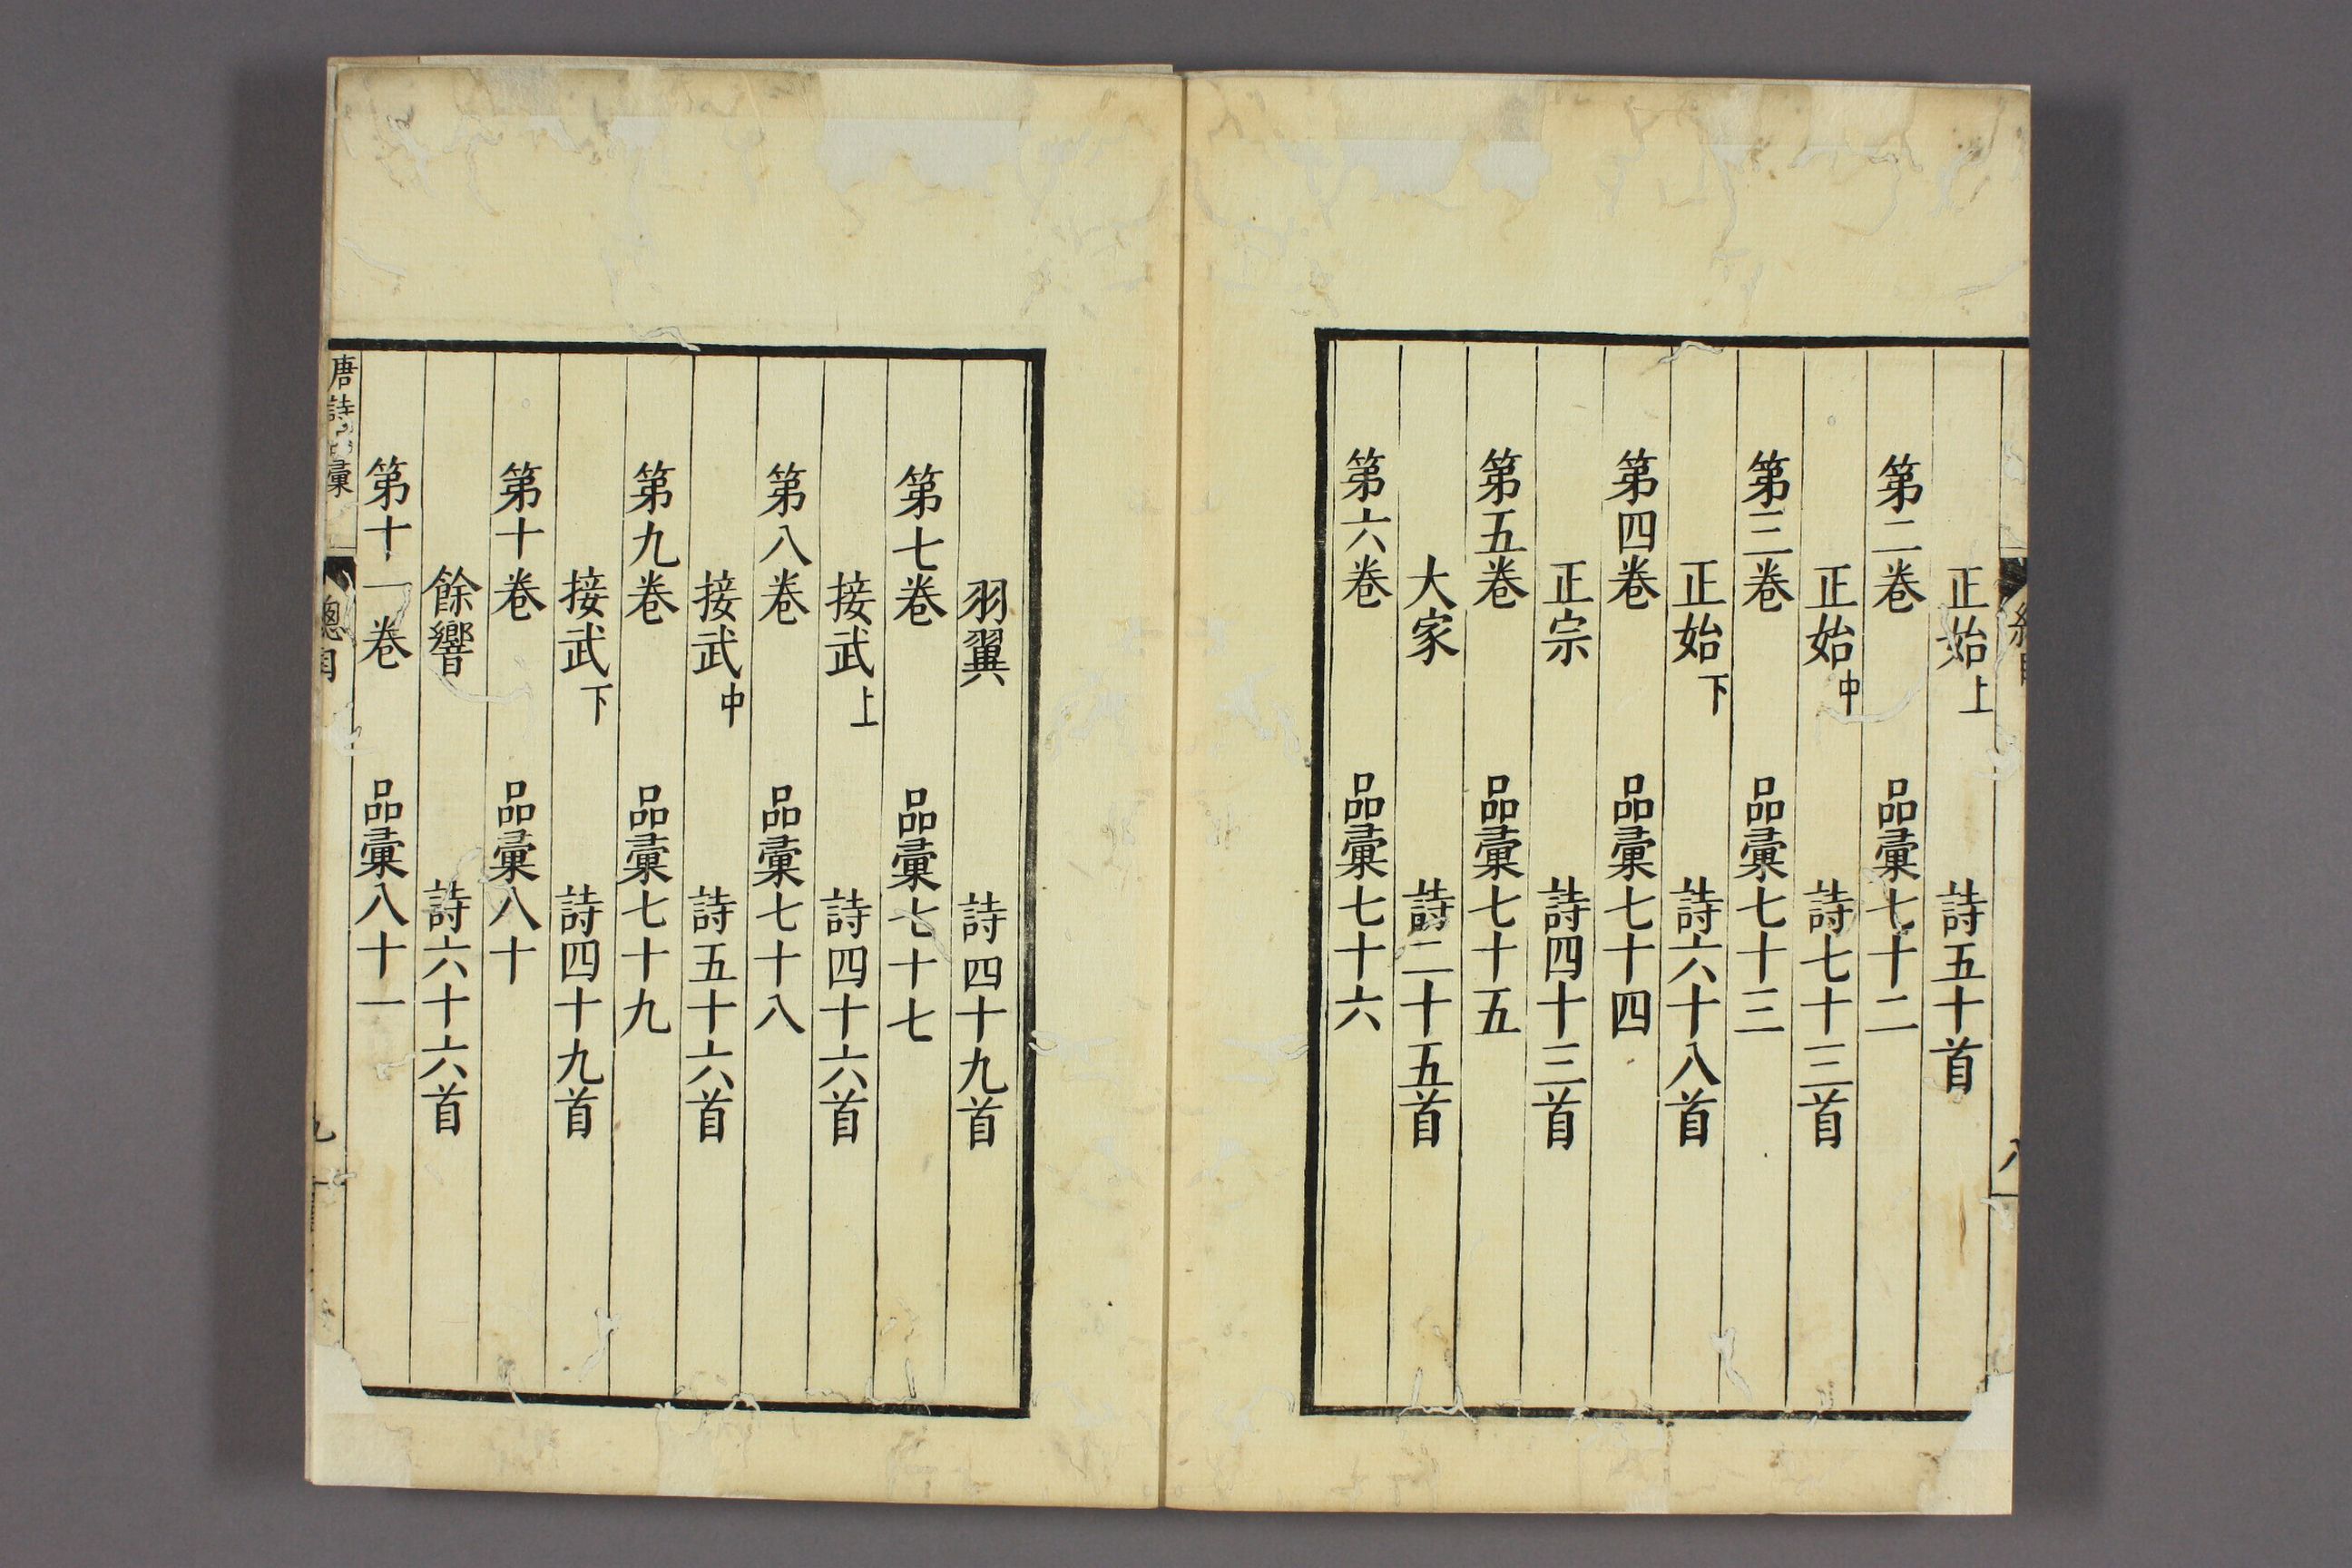 正始上 詩五十首
第二卷 品彙七十二
正始中 詩七十三首
第三卷 品彙七十三
正始下 詩六十八首
第四卷 品彙七十四
正宗 詩四十三首
第五卷 品彙七十五
大家 詩二十五首
第六卷 品彙七十六
羽翼 詩四十九首
第七卷 品彙七十七
接武上 詩四十六首
第八卷 品彙七十八
接武中 詩五十六首
第九卷 品彙七十九
接武下 詩四十九首
第十卷 品彙八十
餘響 詩六十六首
第十一卷 品彙八十一
唐詩 彙 總目 九